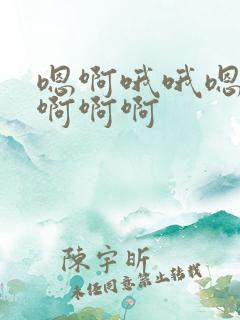 嗯啊哦哦嗯
啊啊啊
陳宇昕
未经同意禁止转载